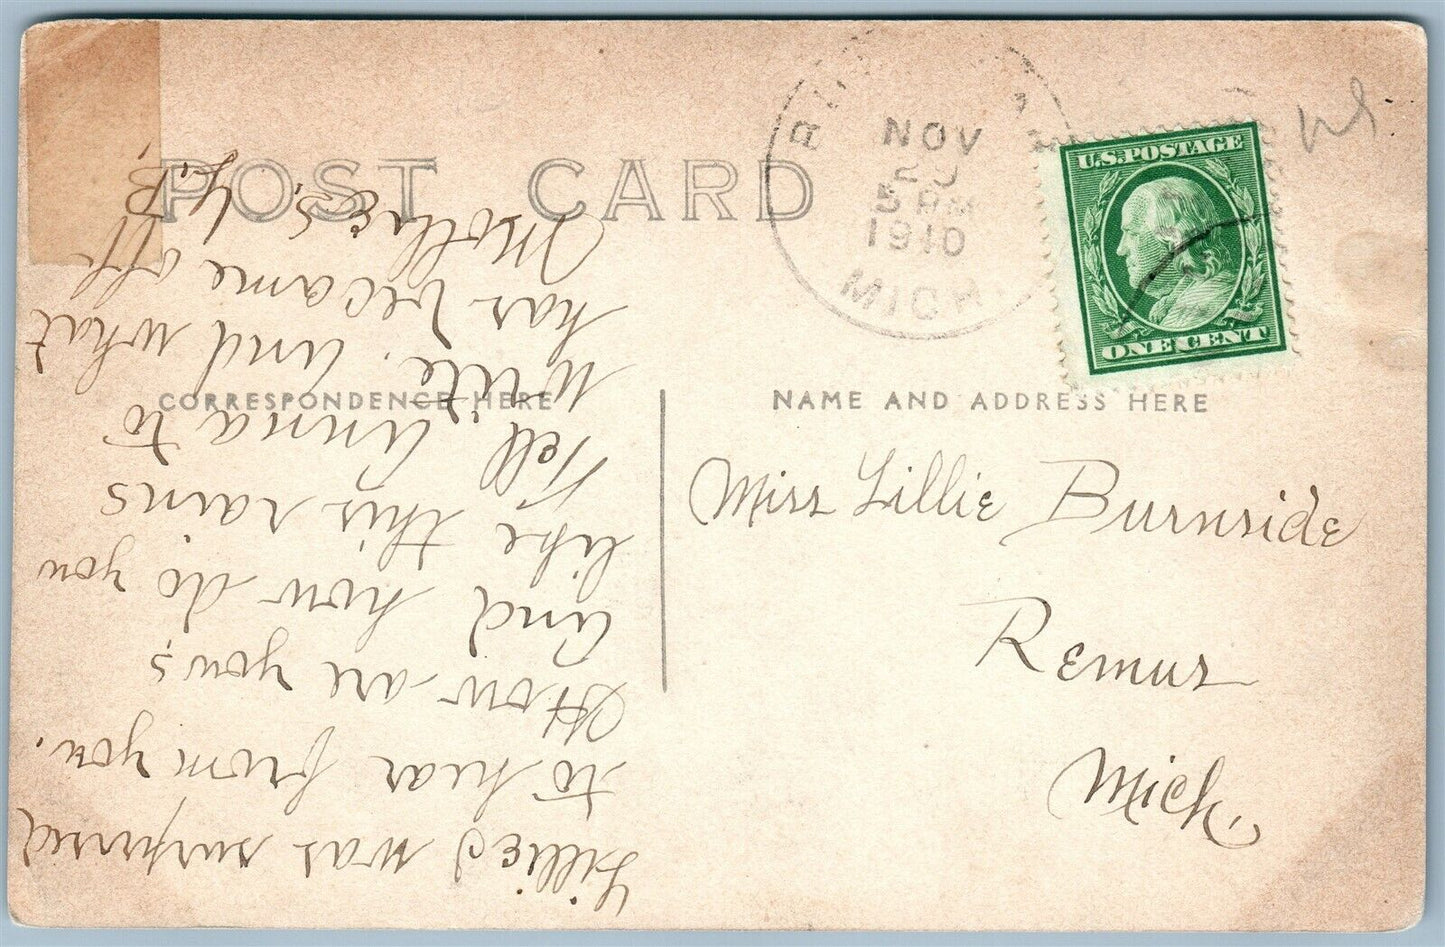 POST CARD
NOV
5 PM
1910
MICH.
U.S. POSTAGE
ONE CENT
CORRESPONDENCE HERE
NAME AND ADDRESS HERE
Miss Lillie Burnside
Remus
Mich,
Lillie I was surprised
to hear from you.
How are you,s
And how do you
like this rains
Tell Anna to
write. and what
has became off
Mollie S.